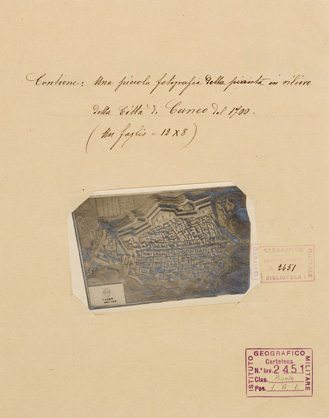 Contiene: Una piccola fotografia della pianta in rilievo
della Città di Cuneo del 1700.
(Un foglio - 12 x 8)
2451
BIBLIOTECA
ISTITUTO GEOGRAFICO MILITARE
Cartoteca
N.° Inv. 2451
Clas.
Pos.